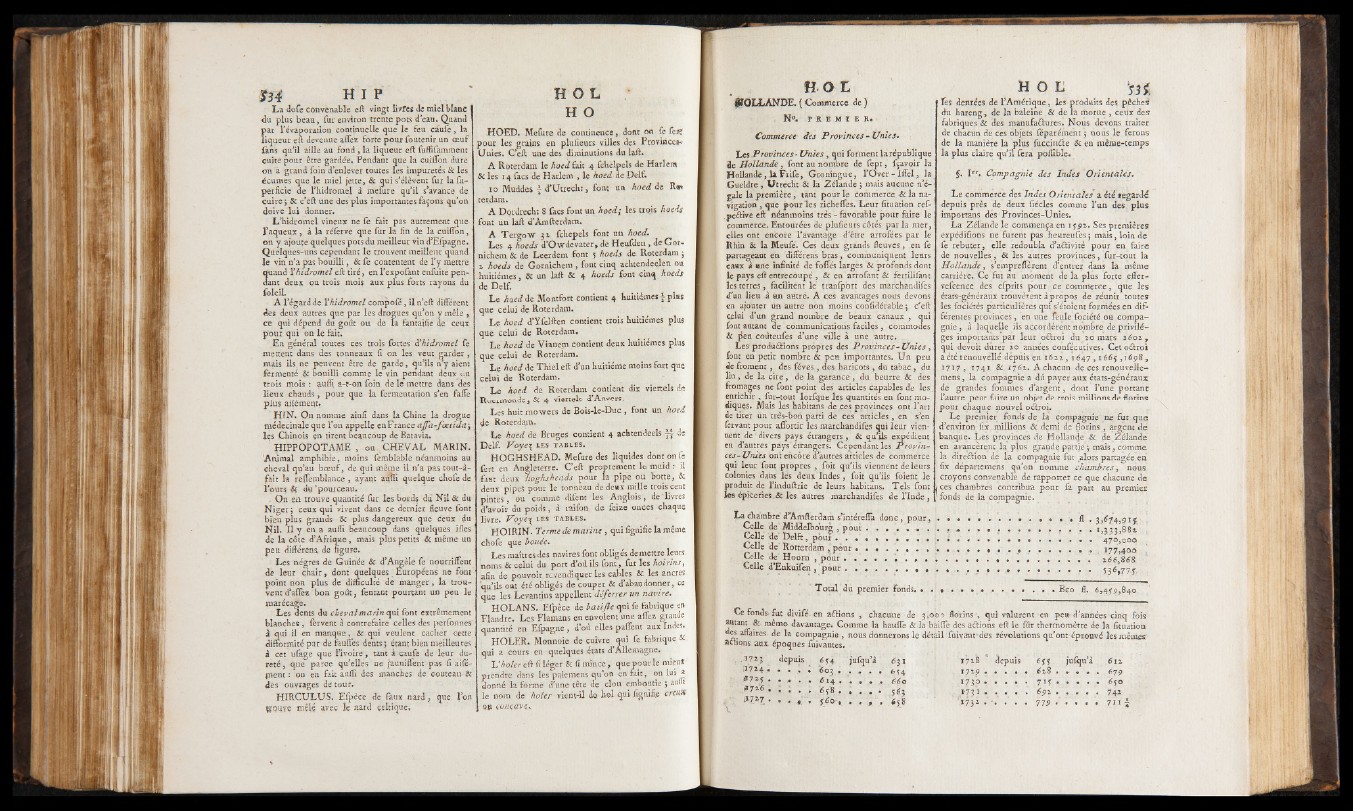 534 H I P
La dose convenable est vingt livres de miel blanc
du plus beau, sur environ trente pots d'eau. Quand
par l'évaporation continuelle que le feu cause, la
liqueur est devenue assez forte pour soutenir un œuf
sans qu'il aille au fond, la liqueur est suffisamment
cuite pour être gardée. Pendant que la cuisson dure
on a grand soin d'enlever toutes ses impuretés & les
écumes que le miel jette, & qui s'élèvent sur la su-
perficie de l'hidromel à mesure qu'il s'avance de
cuire; & c'est une des plus importantes façons qu'on
doive lui donner.
L'hidromel vineux ne se fait pas autrement que
l'aqueux, à la réserve que sur la fin de la cuisson,
on y ajoute quelques pots du meilleur vin d'Espagne.
Quelques-uns cependant le trouvent meilleur quand
le vin n'a pas bouilli, & se contentent de l'y mettre
quand l'hidromel est tiré, en l'exposant ensuite pen-
dant deux ou trois mois aux plus forts rayons du
soleil.
A l'égard de l'hidromel composé, il n'est différent
des deux autres que par les drogues qu'on y mêle,
ce qui dépend du goût ou de la fantaisie de ceux
pour qui on le fait.
En général toutes ces trois sortes d'hidromel se
mettent dans des tonneaux si on les veut garder,
mais ils ne peuvent être de garde, qu'ils n'y aient
fermenté & bouilli comme le vin pendant deux ou
trois mois : aussi a-t-on soin de le mettre dans des
lieux chauds, pour que la fermentation s'en fasse
plus aisément.
HIN. On nomme ainsi dans la Chine la drogue
médecinale que l'on appelle en France assa-fœtida;
les Chinois en tirent beaucoup de Batavia.
HIPPOPOTAME, ou CHEVAL MARIN.
Animal amphibie, moins semblable néanmoins au
cheval qu'au bœuf, de qui même il n'a pas tout-à-
fait la ressemblance, ayant aussi quelque chose de
l'ours & du pourceau.
On en trouve quantité sur les bords du Nil & du
Niger; ceux qui vivent dans ce dernier fleuve sont
bien plus grands & plus dangereux que ceux du
Nil. Il y en a aussi beaucoup dans quelques isles
de la côte d'Afrique, mais plus petits & même un
peu différens de figure.
Les négres de Guinée & d'Angéle se nourrissent
de leur chair, dont quelques Européens ne font
point non plus de difficulté de manger, la trou-
vent d'assez bon goût, sentant pourtant un peu le
marécage.
Les dents du cheval marin qui sont extrêmement
blanches, servent à contrefaire celles des personnes
à qui il en manque, & qui veulent cacher cette
difformité par de fausses dents; étant bien meilleures
à cet usage que l'ivoire, tant à cause de leur du-
reté, que parce qu'elles ne jaunissent pas si aisé-
ment : on en fait aussi des manches de couteau &
des ouvrages de tour.
HIRCULUS. Espèce de faux nard, que l'on
trouve mêlé avec le nard celtique.
H O L
H O
HOED. Mesure de continence, dont on se sert
pour les grains en plusieurs villes des Provinces-
Unies. C'est une des diminutions du last.
A Roterdam le hoed fait 4 schelpels de Harlem
& les 14 sacs de Harlem, le hoed de Delf.
10 Muddes ¾ d'Utrecht, font un hoed de Ro-
terdam.
A Dordrecht 8 sacs font un hoed; les trois hoeds
font un last d'Amsterdam.
A Tergow 32 schepels font un hoed.
Les 4 hoeds d'Owdevater, de Heusden, de Gor-
nichem & de Leerdem font 5 hoeds de Roterdam;
2 hoeds de Gornichem, font cinq achtendeelen ou
huitiémes, & un last & 4 hoeds font cinq hoeds
de Delf.
Le hoed de Montfort contient 4 huitiémes ½ plus
que celui de Roterdam.
Le hoed d'Yselsten contient trois huitiémes plus
que celui de Roterdam.
Le hoed de Vianem contient deux huitiémes plus
que celui de Roterdam.
Le hoed de Thiel est d'un huitiéme moins fort que
celui de Roterdam.
Le hoed de Roterdam contient dix viertels de
Roermonde, & 4 viertels d'Anvers.
Les huit mowers de Bois-le-Duc, font un hoed
de Roterdam.
Le hoed de Bruges contient 4 achtendeels de
Delf. Voyez LES TABLES.
HOGHSHEAD. Mesure des liquides dont on se
sert en Angleterre. C'est proprement le muid : il
faut deux hoghsheads pour la pipe ou botte, &
deux pipes pour le tonneau de deux mille trois cent
pintes, ou comme disent les Anglois, de livres
d'avoir du poids, à raison de seize onces chaque
livre. Voyez LES TABLES.
HOIRIN. Terme de marine, qui signifie la même
chose que bouée.
Les maîtres des navires sont obligés de mettre leurs
noms & celui du port d'où ils sont, sur les hoirins,
afin de pouvoir revendiquer les cables & les ancres
qu'ils ont été obligés de couper & d'abandonner, ce
que les Levantins appellent déferrer un navire.
HOLANS. Espèce de batiste qui se fabrique en
Flandre. Les Flamans en envoient une assez grande
quantité en Espagne, d'où elles passent aux Indes.
HOLER. Monnoie de cuivre qui se fabrique &
qui a cours en quelques états d'Allemagne.
L'holer est si léger & si mince, que pour le mieux
prendre dans les paiemens qu'on en fait, on lui a
donné la forme d'une tête de clou emboutie; aussi
le nom de holer vient-il de hol qui signifie creux
ou concave.
H O L
HOLLANDE. ( Commerce de )
N°. PREMIER.
Commerce des Provinces-Unies.
Les Provinces-Unies, qui forment la république
de Hollande, sont au nombre de sept, sçavoir la
Hollande, la Frise, Groningue, l'Over-Issel, la
Gueldre, Utrecht & la Zélande; mais aucune n'é-
gale la première, tant pour le commerce & la na-
vigation, que pour les richesses. Leur situation res-
pective est néanmoins très-favorable pour faire le
commerce. Entourées de plusieurs côtés par la mer,
elles ont encore l'avantage d'être arrosées par le
Rhin & la Meuse. Ces deux grands fleuves, en se
partageant en différens bras, communiquent leurs
eaux à une infinité de fossés larges & profonds dont
le pays est entrecoupé, & en arrosant & fertilisant
les terres, facilitent le transport des marchandises
d'un lieu à un autre. A ces avantages nous devons
en ajouter un autre non moins considérable; c'est
celui d'un grand nombre de beaux canaux, qui
font autant de communications faciles, commodes
& peu couteuses d'une ville à une autre.
Les productions propres des Provinces-Unies,
sont en petit nombre & peu importantes. Un peu
de froment, des féves, des haricots, du tabac, du
lin, de la cire, de la garence, du beurre & des
fromages ne sont point des articles capables de les
enrichir, sur-tout lorsque les quantités en sont mo-
diques. Mais les habitans de ces provinces ont l'art
de tirer un très-bon parti de ces articles, en s'en
servant pour assortir les marchandises qui leur vien-
nent de divers pays étrangers, & qu'ils expédient
en d'autres pays étrangers. Cependant les Provin-
ces-Unies ont encore d'autres articles de commerce
qui leur sont propres, soit qu'ils viennent de leurs
colonies dans les deux Indes, soit qu'ils soient le
produit de l'industrie de leurs habitans. Tels sont
les épiceries & les autres marchandises de l'Inde,
H O L 535
les denrées de l'Amérique, les produits des pêches
du hareng, de la baleine & de la morue, ceux des
fabriques & des manufactures. Nous devons traiter
de chacun de ces objets séparément; nous le ferons
de la manière la plus succincte & en même-temps
la plus claire qu'il sera possible.
§. Ier. Compagnie des Indes Orientales.
Le commerce des Indes Orientales a été regardé
depuis près de deux siécles comme l'un des plus
importans des Provinces-Unies.
La Zélande le commença en 1592. Ses premières
expéditions ne furent pas heureuses; mais, loin de
se rebuter, elle redoubla d'activité pour en faire
de nouvelles, & les autres provinces, sur-tout la
Hollande, s'empressèrent d'entrer dans la même
carrière. Ce fut au moment de la plus forte effer-
vescence des esprits pour ce commerce, que les
états-généraux trouvèrent à propos de réunir toutes
les sociétés particulières qui s'étoient formées en dif-
férentes provinces, en une seule société ou compa-
gnie, à laquelle ils accordèrent nombre de privilé-
ges importans par leur octroi du 20 mars 1602,
qui devoit durer 20 années consécutives. Cet octroi
a été renouvellé depuis en 1622, 1647, 1665, 1698,
1717, 1741 & 1762. A chacun de ces renouvelle-
mens, la compagnie a dû payer aux états-généraux
de grandes sommes d'argent, dont l'une portant
l'autre peut faire un objet de trois millions de florins
pour chaque nouvel octroi.
Le premier fonds de la compagnie ne fut que
d'environ six millions & demi de florins, argent de
banque. Les provinces de Hollande & de Zélande
en avancèrent la plus grande partie; mais, comme
la direction de la compagnie fut alors partagée en
six départemens qu'on nomme chambres, nous
croyons convenable de rapporter ce que chacune de
ces chambres contribua pour sa part au premier
fonds de la compagnie.
La chambre d'Amsterdam s'intéressa donc, pour, . . . . . . . . fl. 3,674,915
Celle de Middelbourg, pour . . . . . . . . 1,333,882
Celle de Delft, pour . . . . . . . . 470,000
Celle de Rotterdam, pour . . . . . . . . 177,400
Celle de Hoorn, pour . . . . . . . . 266,868
Celle d'Enkuisen, pour . . . . . . . . 536,775
Total du premier fonds. . . . . . . . . Bco fl. 6,459,840
Ce fonds fut divisé en actions, chacune de 3,000 florins, qui valurent en peu d'années cinq fois
autant & même davantage. Comme la hausse & la baisse des actions est le sûr thermomètre de la situation
des affaires de la compagnie, nous donnerons le détail suivant des révolutions qu'ont éprouvé les mêmes
actions aux époques suivantes.
1723 depuis 654 jusqu'à 631
1724 . . . . . 603 . . . . . 654
1725 . . . . . 614 . . . . . 660
1726 . . . . . 658 . . . . . 563
1727 . . . . . 560 . . . . . 658
1728 depuis 655 jusqu'à 612
1729 . . . . . 628 . . . . . 679
1730 . . . . . 715 . . . . . 650
1731 . . . . . 692 . . . . . 742
1732 . . . . . 779 . . . . . 711